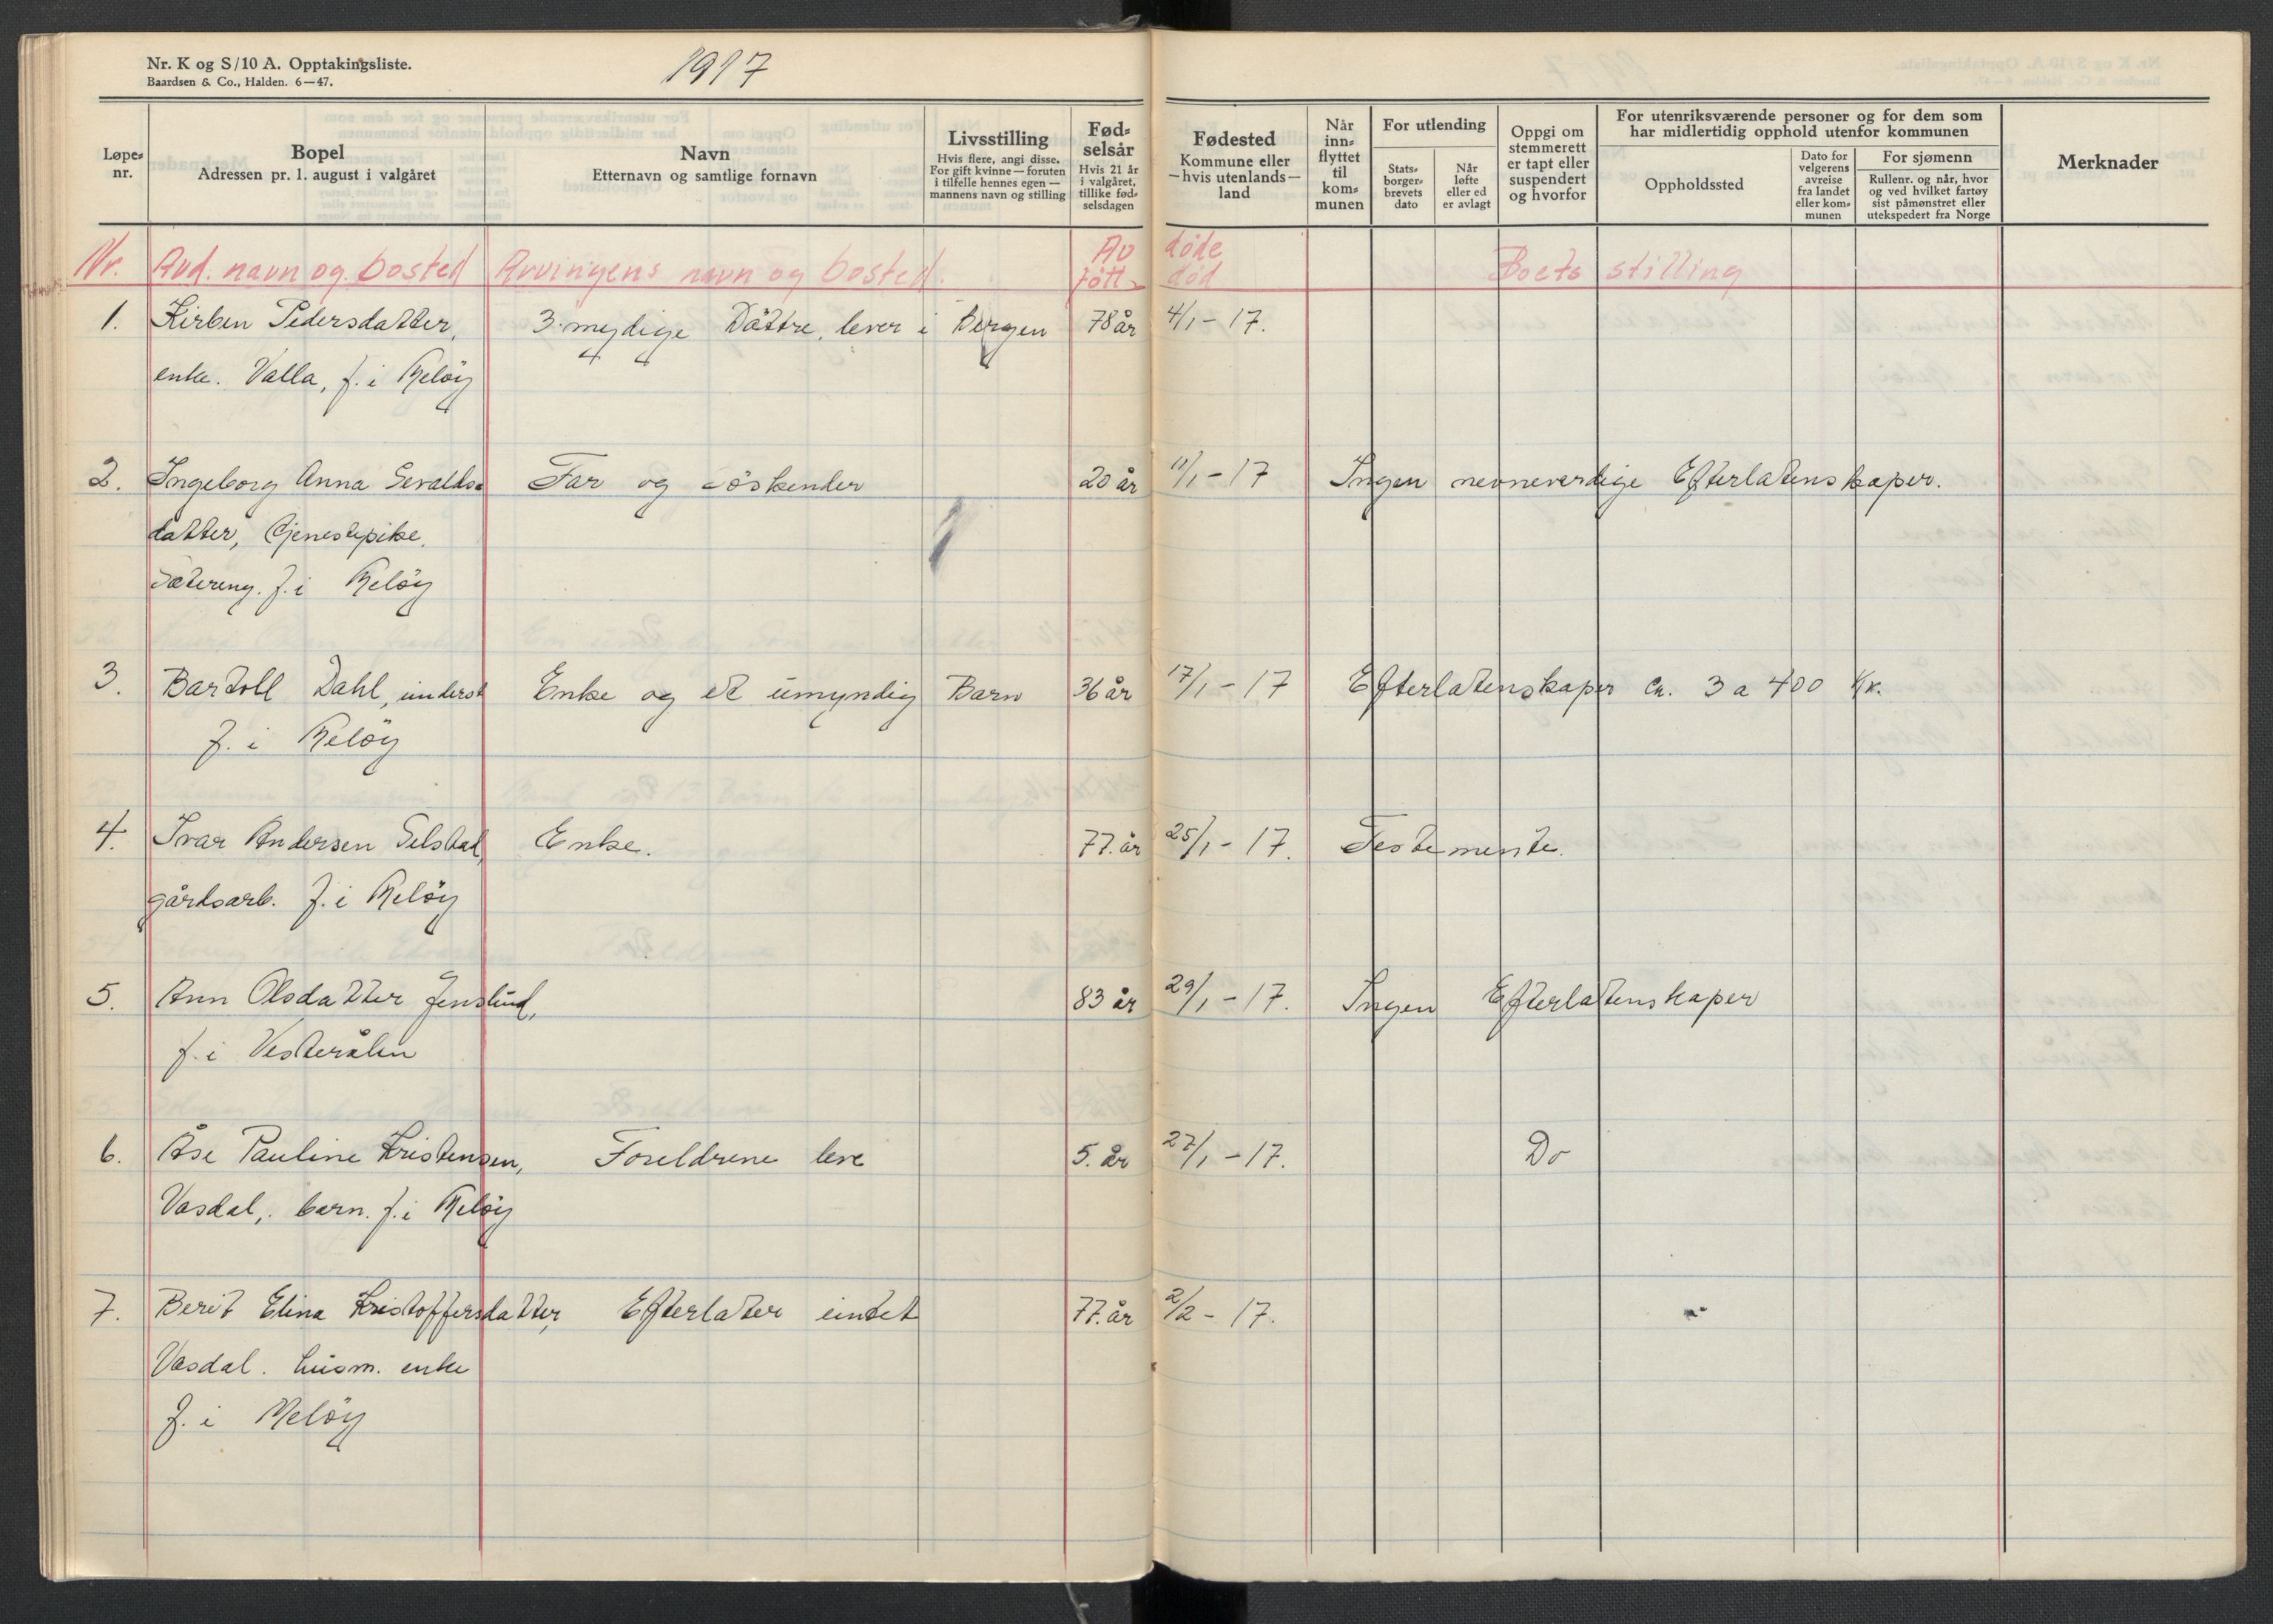 Nr. K og S/10 A. Opptakingsliste.
Baardsen & Co., Halden. 6—47.
1917
Løpe-
nr.
Bopel
Adressen pr. 1. august i valgåret
Navn
Etternavn og samtlige fornavn
Livsstilling
Hvis flere, angi disse.
For gift kvinne — foruten
i tilfelle hennes egen —
mannens navn og stilling
Fød-
selsår
Hvis 21 år
i valgåret,
tillike fød-
selsdagen
Fødested
Kommune eller
—hvis utenlands—
land
Når
inn-
flyttet
til
kom-
munen
For utlending
Stats-
borger-
brevets
dato
Når
løfte
eller ed
er avlagt
Oppgi om
stemmerett
er tapt eller
suspendert
og hvorfor
For utenriksværende personer og for dem som
har midlertidig opphold utenfor kommunen
Oppholdssted
Dato for
velgerens
avreise
fra landet
eller kom-
munen
For sjømenn
Rullenr. og når, hvor
og ved hvilket fartøy
sist påmønstret eller
utekspedert fra Norge
Merknader
Av døde
Nr. Avd. navn og. bosted Arvingens navn og bosted. født død Boets stilling
1. Kirben Pedersdatter, 3 mydige Döttre, lever i Bergen 78 år 4/1 - 17.
enke. Valla, f. i Meløy
2. Ingeborg Anna Evalds- Far og söskender 20 år 11/1 - 17 Ingen nevneverdige Efterlatenskaper.
datter, tjenestepike.
Sætereng. f. i Meløy
3. Bartoll Dahl, inderst Enke og et umyndig Barn 36 år 17/1 - 17 Efterlatenskaper Ca. 3 a 400 Kr.
f. i Meløy
4. Ivar Andersen Selstad, Enke. 77. år 25/1 - 17. Testemente.
gårdsarb. f. i Meløy
5. Ann Olsdatter Jenslund, 83 år 29/1 - 17. Ingen Efterlatenskaper
f. i Vesterålen
6. Åse Pauline Kristensen, Foreldrene leve 5. år 27/1 - 17. Do
Vasdal, barn. f. i Meløy
7. Berit Elina Kristoffersdatter, Efterlater intet 77. år 2/2 - 17. "
Vasdal. husm. enke
f. i Meløy